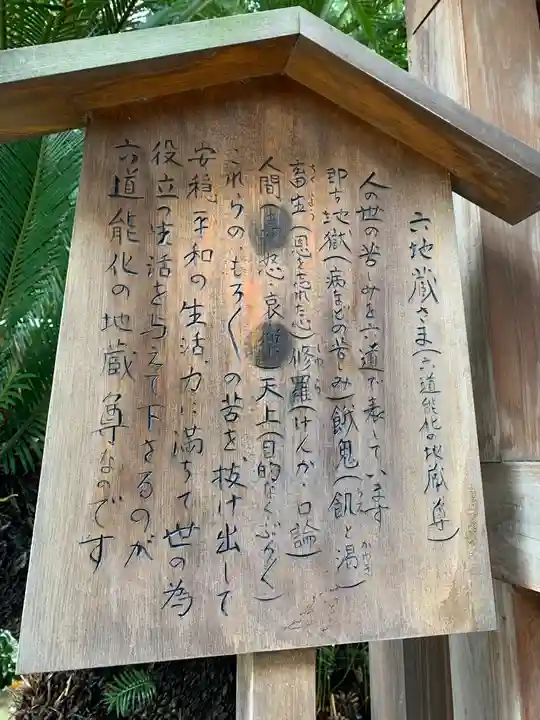 六地蔵さま(六道能化の地蔵尊)
人の世の苦しみを六道で表しています
即ち地獄(病などの苦しみ)餓鬼(飢と渇)
畜生(恩を忘れた)修羅(けんか・口論)
人間(喜・怒・哀・楽)天上(目的なくぶらく)
これらのもろ〱の苦を抜け出して
安穏平和の生活力に満ちて世の為
役立つ生活を与えて下さるのが
六道能化の地蔵尊なのです